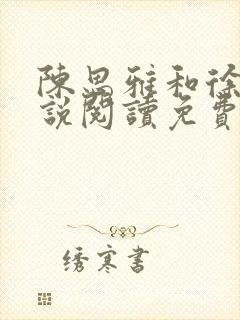 陳思雅和徐
說閱讀免費
绣寒書